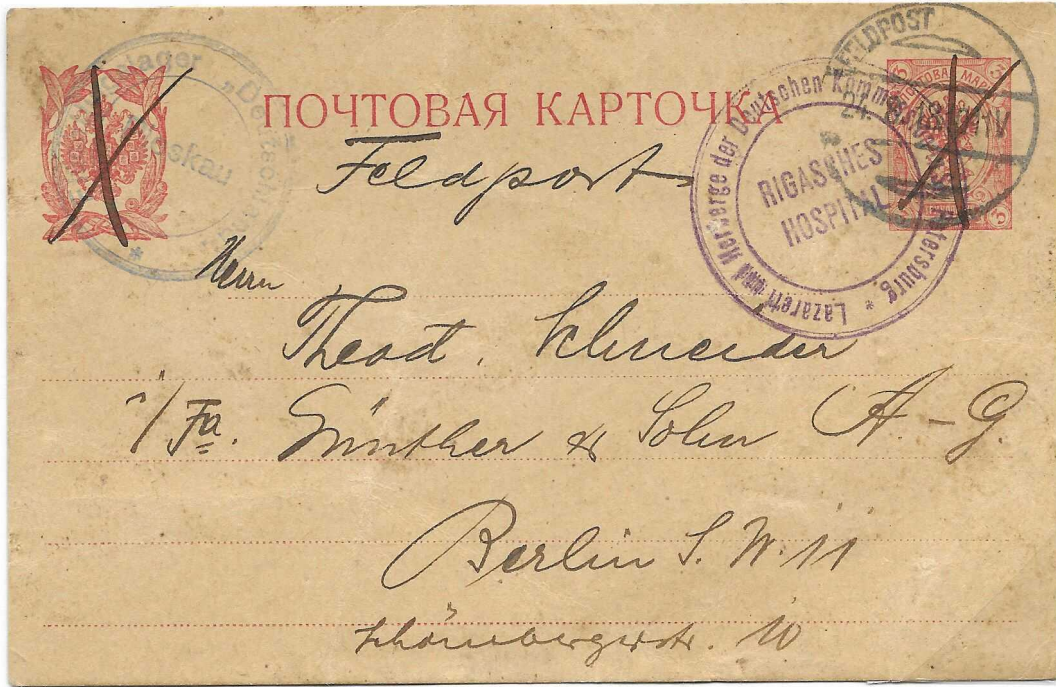 ПОЧТОВАЯ КАРТОЧКА
lager „Deutschland"
Moskau
FELDPOST
24.
Lazarett und Herberge der Deutschen Petersburg *
RIGASCHES
HOSPITAL
Feldpost
Herrn
Theod. Schneider
i/Fa. Günther & Sohn A-G.
Berlin S.W. 11
Schönebergerstr. 10